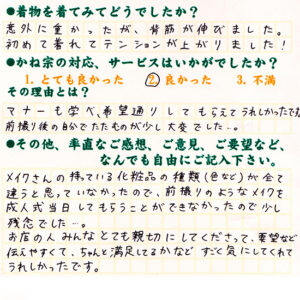 ●着物を着てみてどうでしたか？
意外に重かったが、背筋が伸びました。
初めて着れてテンションが上がりました！
●かね宗の対応、サービスはいかがでしたか？
1. とても良かった 2. 良かった 3. 不満
その理由とは？
マナーも学べ、希望通りしてもらえてうれしかったです
前撮り後の自分でたたむのが少し大変でした…。
●その他、率直なご感想、ご意見、ご要望など、
なんでも自由にご記入下さい。
メイクさんの持っている化粧品の種類(色など)が全て
違うと思っていなかったので、前撮りのようなメイクを
成人式当日してもらうことができなかったので少し
残念でした…。
お店の人みんなとても親切にしてくださって、要望など
伝えやすくて、ちゃんと満足してるかなど すごく気にしてくれて
うれしかったです。